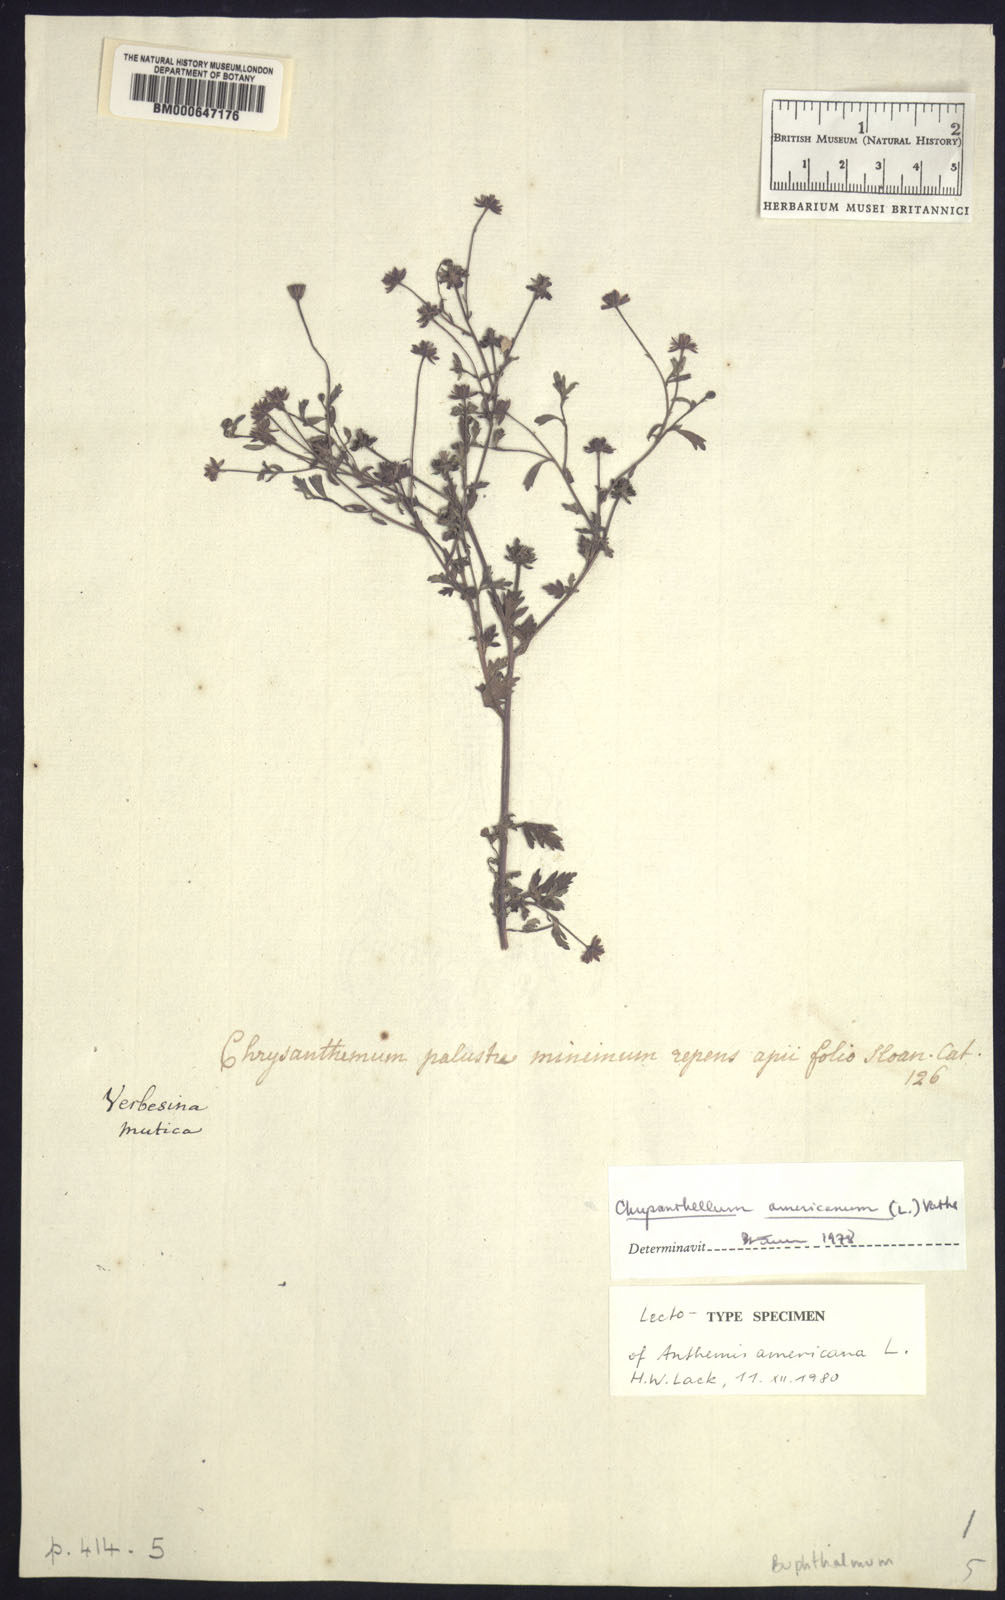 THE NATURAL HISTORY MUSEUM, LONDON
DEPARTMENT OF BOTANY
BM000647176
1 2
BRITISH MUSEUM (NATURAL HISTORY)
1 2 3 4 5
HERBARIUM MUSEI BRITANNICI
Chrysanthemum palustre minimum repens apii folio Sloan. Cat.
126
Verbesina
mutica
Chrysanthellum americanum (L.) Vatke
Determinavit 1978
Lecto- TYPE SPECIMEN
of Anthemis americana L.
H.W. Lack, 11. XII. 1980
p. 414. 5
Buphthalmum
1
5